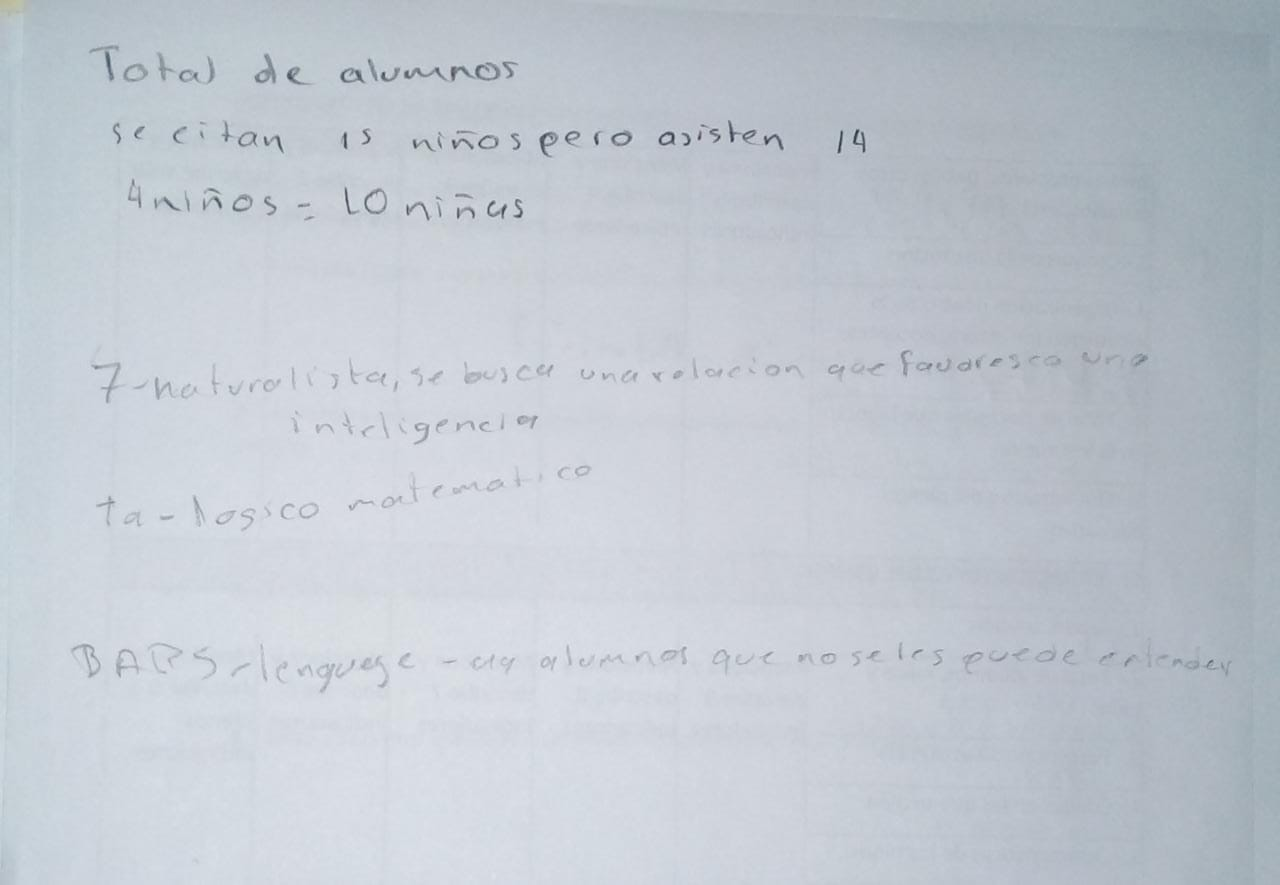 Total de alumnos
se citan 15 niños pero asisten 14
4 niños = 10 niñas
7-naturalista, se busca una relacion que favoresca una
inteligencia
ta-logico matematico
BAPS-lenguege - alumnos que no se les puede entender